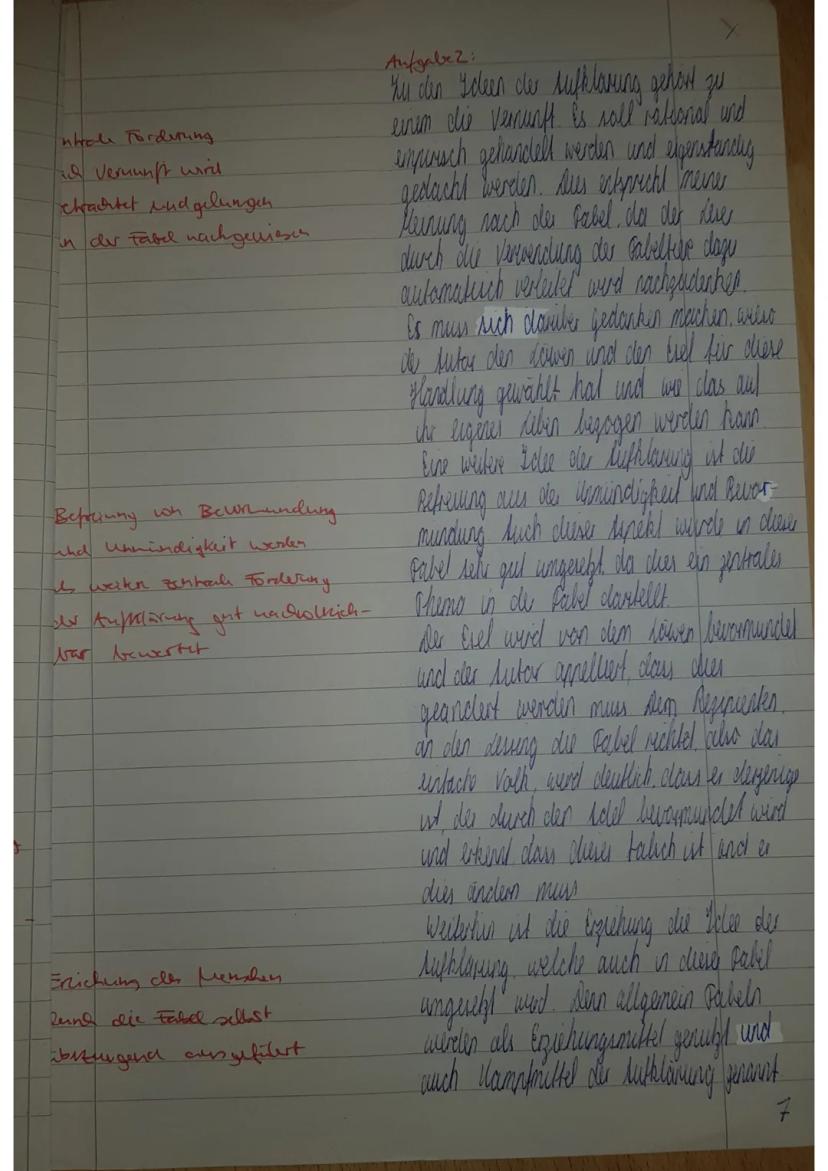 Aufgabe 2:
Zu den Ideen der Aufklärung gehört zu
einem die Vernunft. Es soll rational und
empirisch gehandelt werden und eigenständig
gedacht werden. Dies entspricht meiner
Meinung nach der Fabel, da der Leser
durch die Verwendung der Fabeltiere dazu
automatisch verleitet wird nachzudenken.
Es muss sich darüber Gedanken machen, wieso
der Autor den Löwen und den Esel für diese
Handlung gewählt hat und wie das auf
ihr eigenes Leben bezogen werden kann
Eine weitere Idee der Aufklärung ist die
Befreiung aus der Unmündigkeit und Bevor-
mundung. Auch dieser Aspekt wurde in dieser
Fabel sehr gut umgesetzt, da dies ein zentrales
Thema in der Fabel darstellt.
Der Esel wird von dem Löwen bevormundet
und der Autor appelliert, dass dies
geändert werden muss. Dem Rezipienten,
an den Lessing die Fabel richtet, also das
einfache Volk, wird deutlich, dass er derjenige
ist, der durch den Adel bevormundet wird
und erkennt dass dieses falsch ist und er
dies ändern muss
Weiterhin ist die Erziehung die Idee der
Aufklärung, welche auch in diese Fabel
umgesetzt wird. Denn allgemein Fabeln
werden als Erziehungsmittel genutzt und
auch Kampfmittel der Aufklärung genannt.
ntrale Forderung
Vernunft wird
und gelungen
in der Fabel nachgewiesen
Befreiung von Bevormundung
und Unmündigkeit werden
als weitere zentrale Forderung
der Aufklärung gut nachvollzieh-
bar bewertet
Erziehung des Menschen
durch die Fabel selbst
überzeugend ausgeführt
7